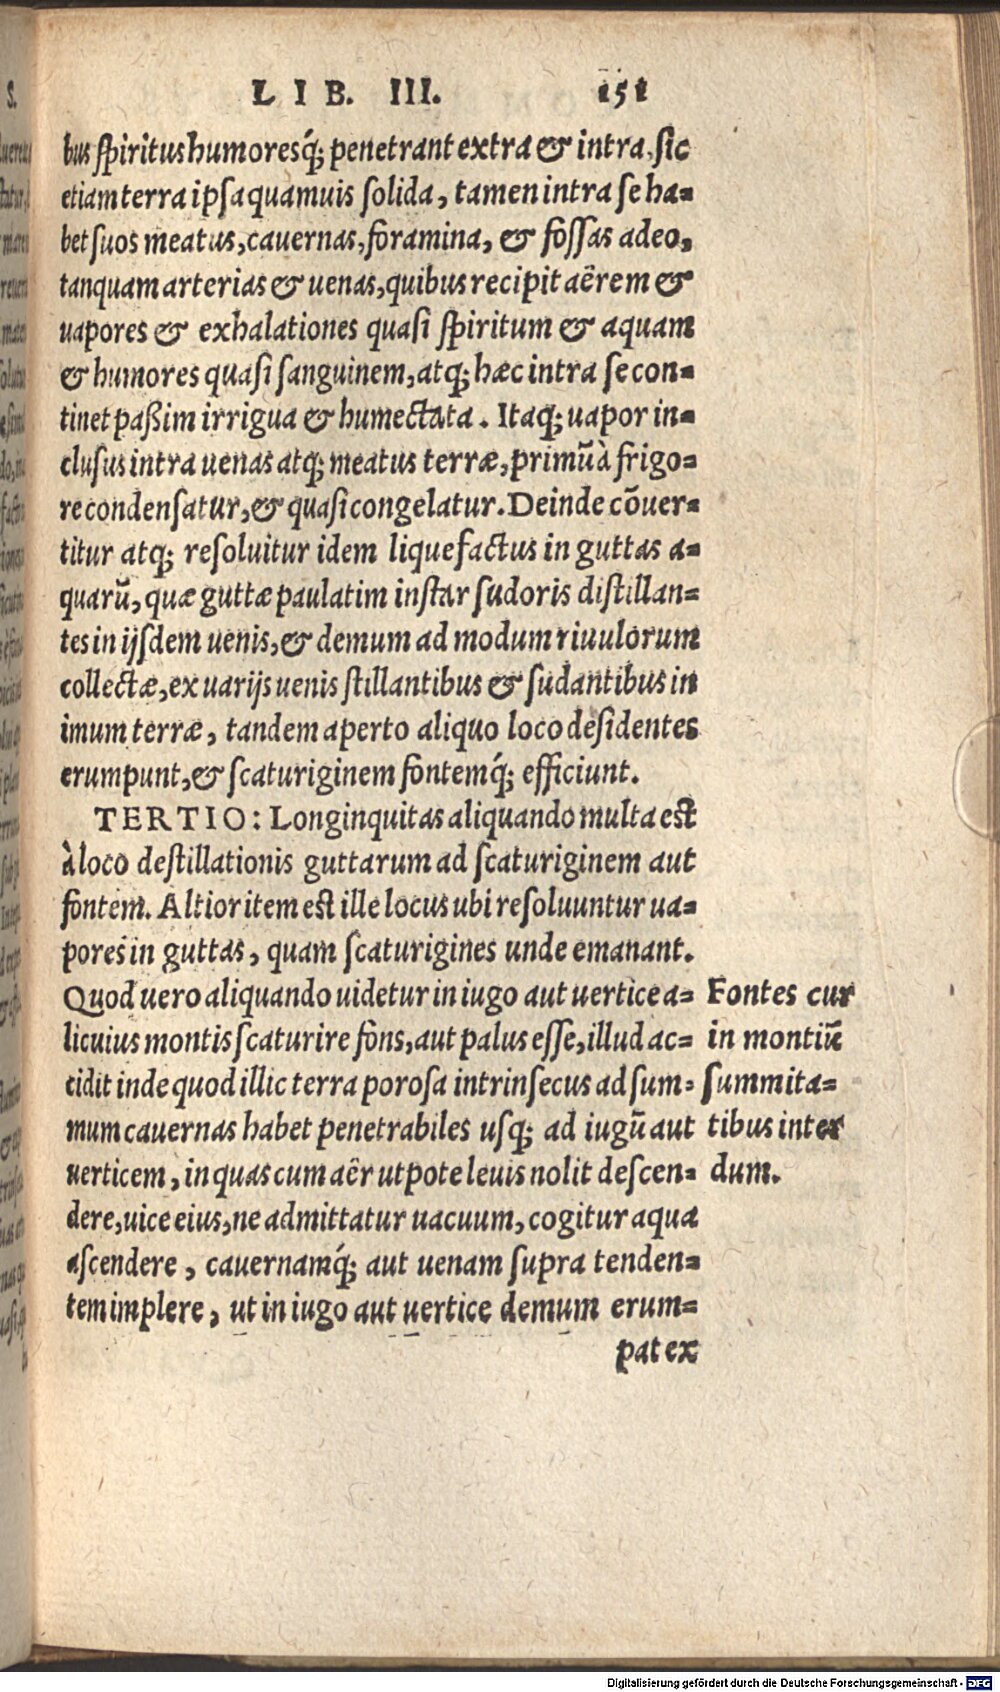 LIB. III. 151
bus ſpiritus humoresq́; penetrant extra & intra, ſic
etiam terra ipſa quamuis ſolida, tamen intra ſe ha=
bet ſuos meatus, cauernas, foramina, & foſſas adeo,
tanquam arterias & uenas, quibus recipit aërem &
uapores & exhalationes quaſi ſpiritum & aquam
& humores quaſi ſanguinem, atq; hæc intra ſe con=
tinet paßim irrigua & humectata. Itaq; uapor in=
cluſus intra uenas atq; meatus terræ, primũ à frigo=
re condenſatur, & quaſi congelatur. Deinde cõuer=
titur atq; reſoluitur idem liquefactus in guttas a=
quarũ, quæ guttæ paulatim inſtar ſudoris diſtillan=
tes in ijſdem uenis, & demum ad modum riuulorum
collectæ, ex uarijs uenis ſtillantibus & ſudantibus in
imum terræ, tandem aperto aliquo loco deſidentes
erumpunt, & ſcaturiginem fontemq́; efficiunt.
TERTIO: Longinquitas aliquando multa est
à loco deſtillationis guttarum ad ſcaturiginem aut
fontem. Altior item est ille locus ubi reſoluuntur ua=
pores in guttas, quam ſcaturigines unde emanant.
Quod uero aliquando uidetur in iugo aut uertice a=
licuius montis ſcaturire fons, aut palus eſſe, illud ac=
cidit inde quod illic terra poroſa intrinſecus ad ſum=
mum cauernas habet penetrabiles uſq; ad iugũ aut
uerticem, in quas cum aër utpote leuis nolit deſcen=
dere, uice eius, ne admittatur uacuum, cogitur aqua
aſcendere, cauernamq́; aut uenam ſupra tenden=
tem implere, ut in iugo aut uertice demum erum=
pat ex
Fontes cur
in montiũ
ſummita=
tibus inter
dum.
Digitalisierung gefördert durch die Deutsche Forschungsgemeinschaft - DFG